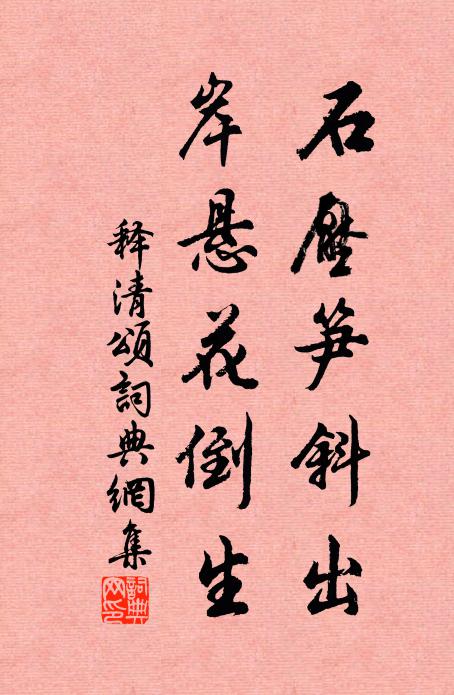 石壓笋斜出
岸悬花倒生
释清頌詞典網集
詞典网印